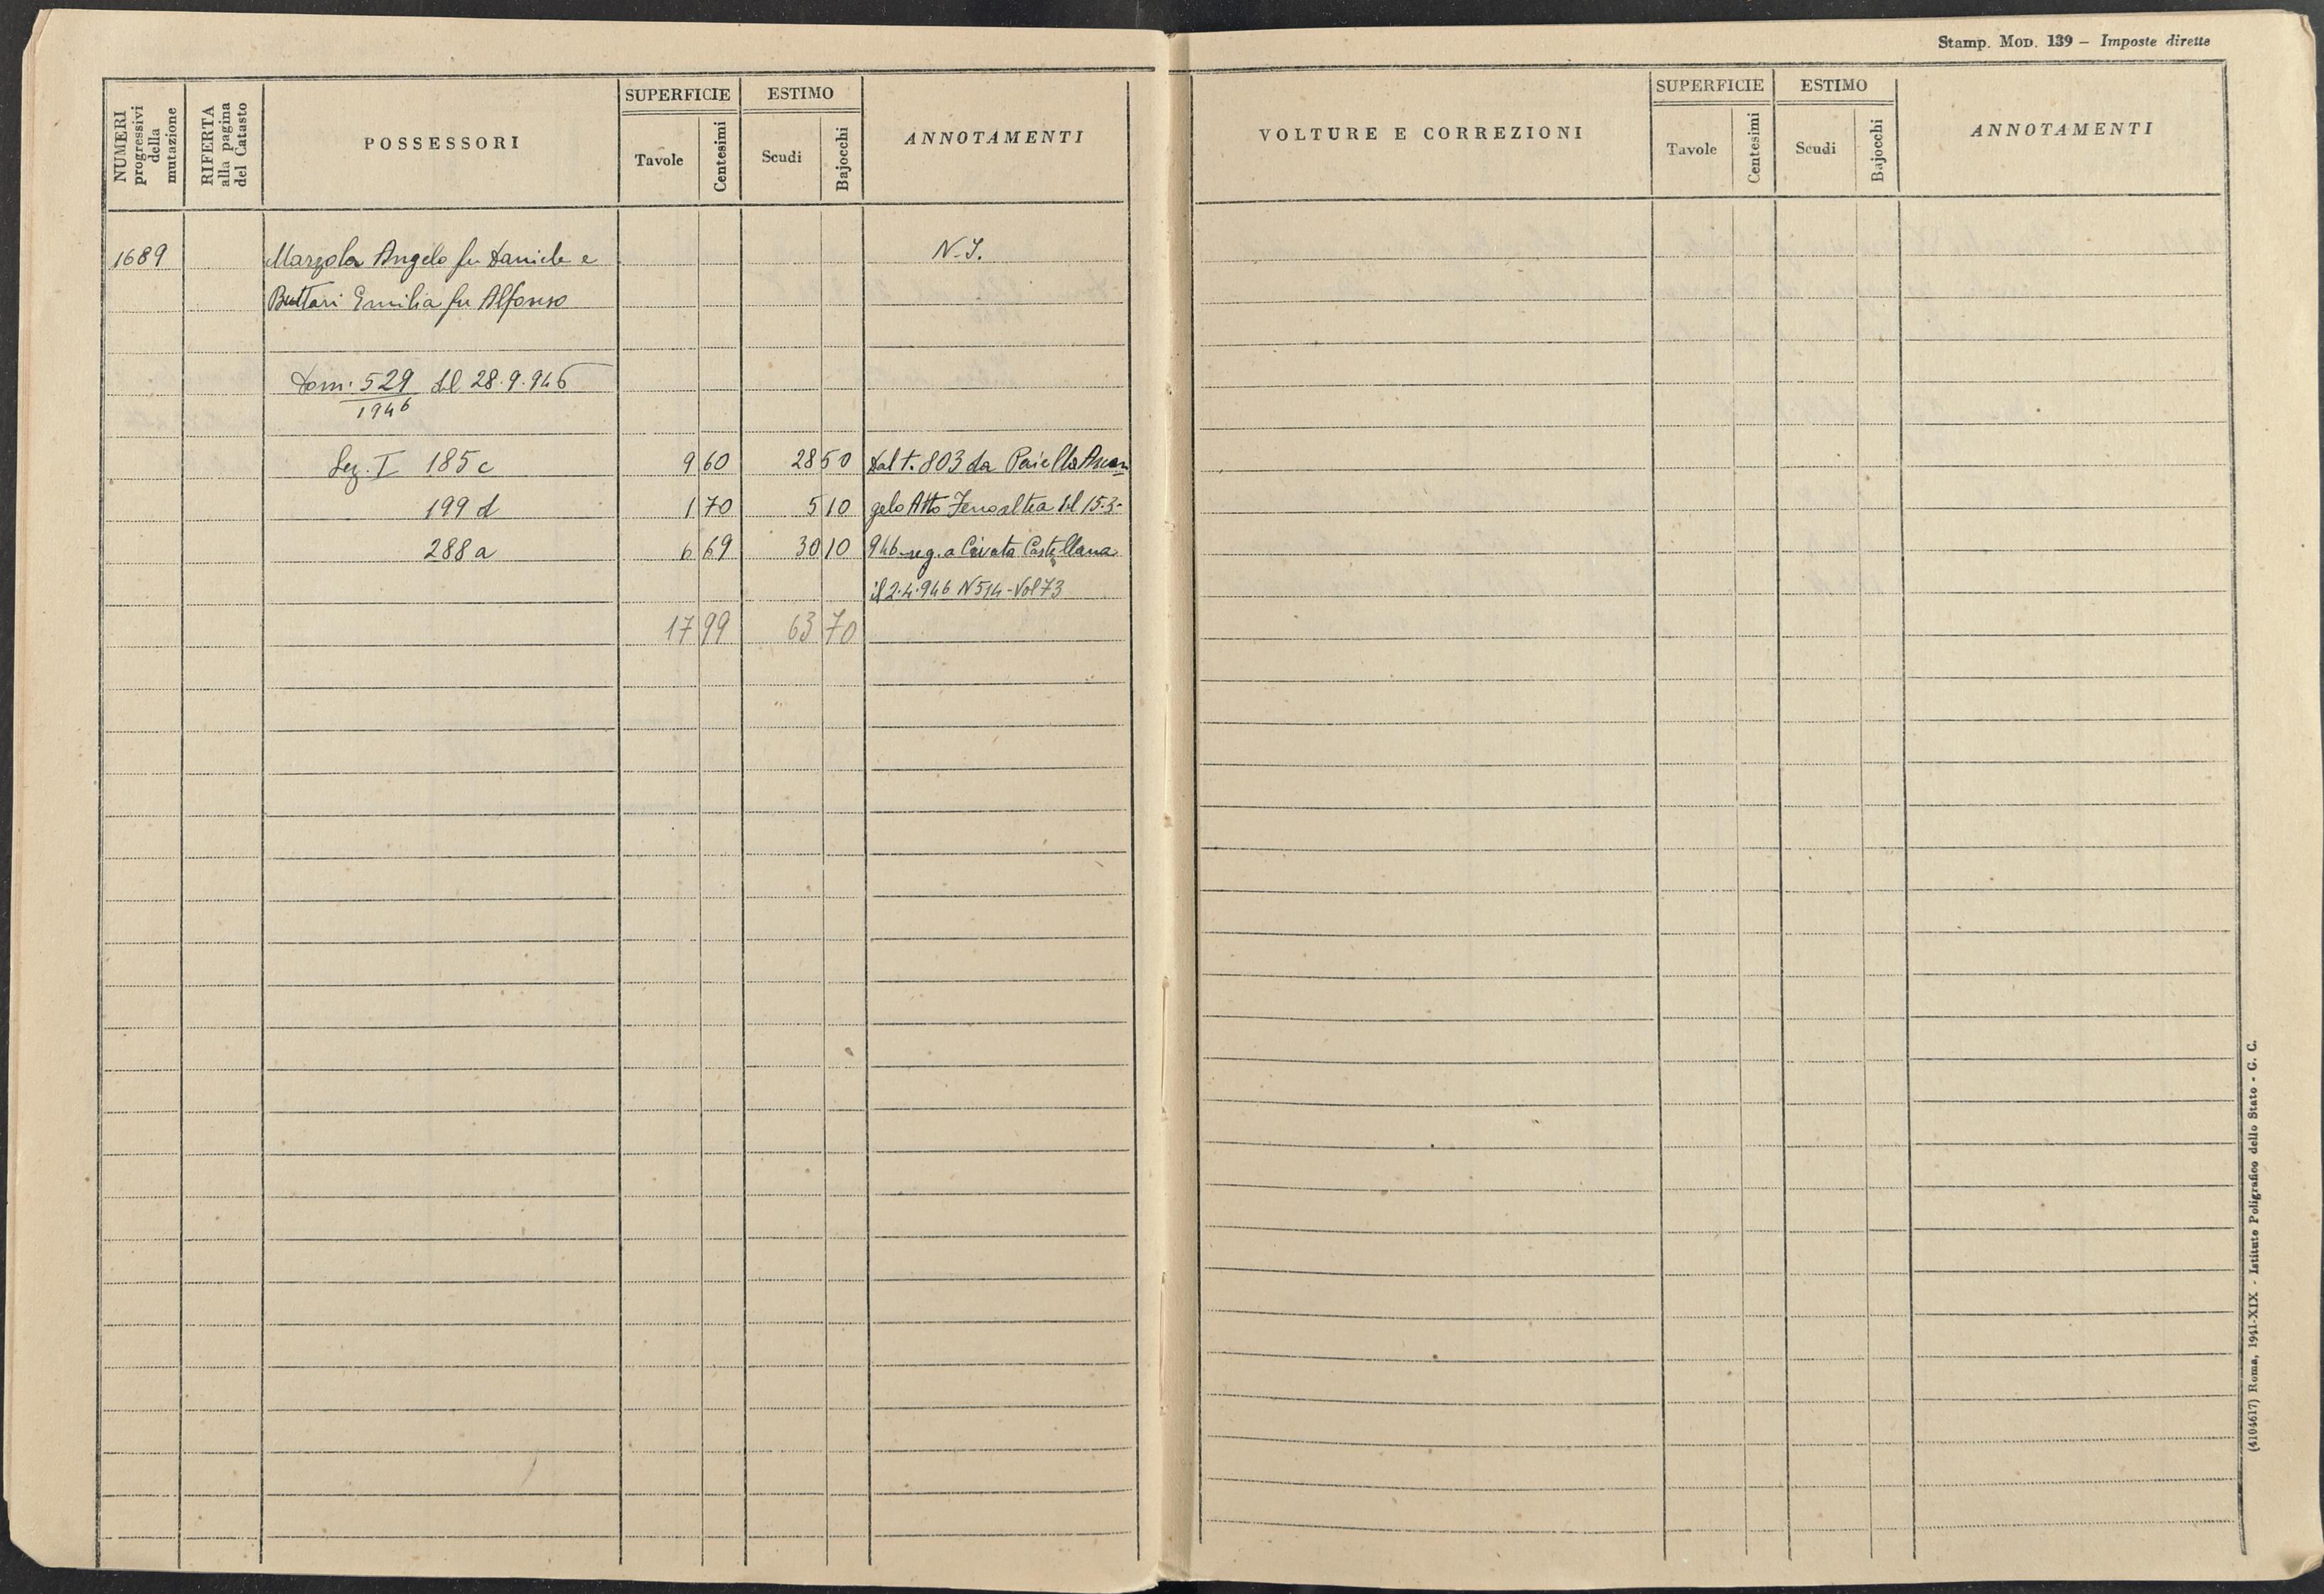 Stamp. Mod. 139 – Imposte dirette
NUMERI progressivi della mutazione
RIFERTA alla pagina del Catasto
POSSESSORI
SUPERFICIE
Tavole
Centesimi
ESTIMO
Scudi
Bajocchi
ANNOTAMENTI
VOLTURE E CORREZIONI
SUPERFICIE
Tavole
Centesimi
ESTIMO
Scudi
Bajocchi
ANNOTAMENTI
1689 Marzola Angelo fu Daniele e N.I.
Buttari Emilia fu Alfonso
Dom. 529 del 28.9.946
1946
Sez. I 185c 9 60 28 50 Dal t. 803 da Paiella Arcan
199 d 1 70 5 10 gelo Atto del 15.3.
288a 6 69 30 10 946 reg. a Civita Castellana
il 2.4.946 N 514 - Vol 73
17 99 63 70
(4104617) Roma, 1941-XIX - Istituto Poligrafico dello Stato - G. C.